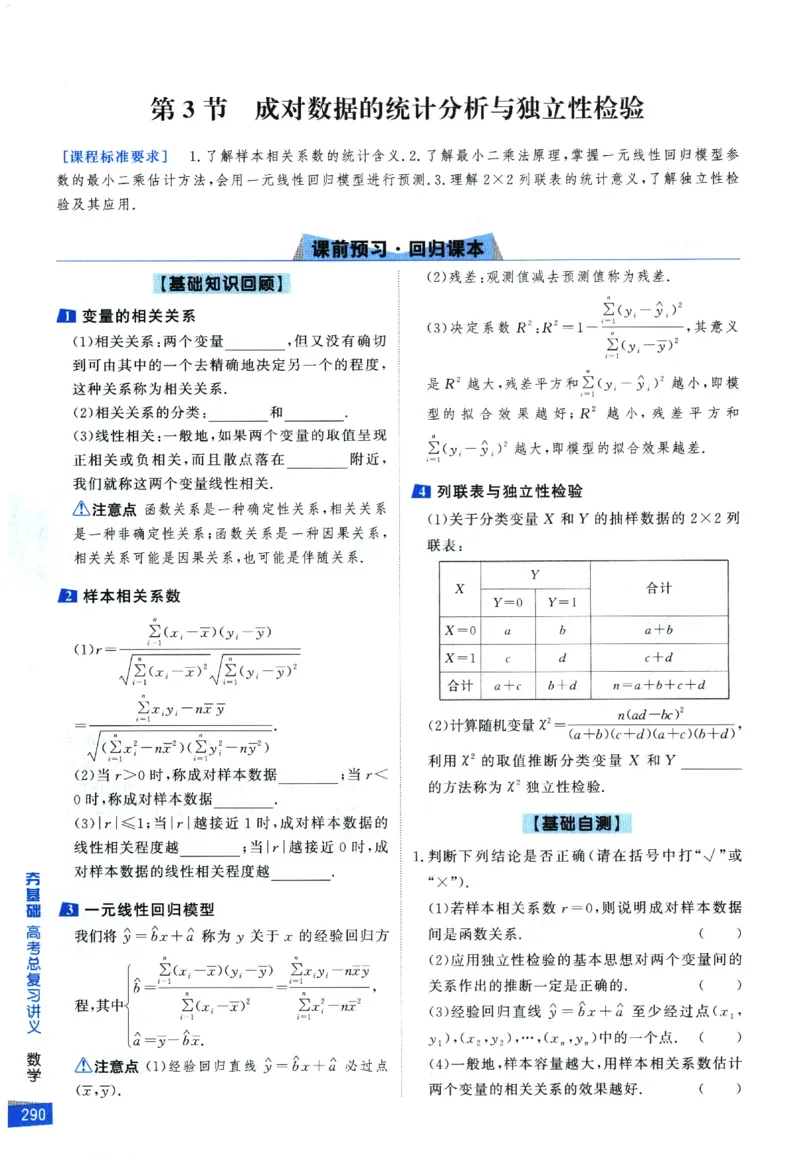 第 3 节 成对数据的统计分析与独立性检验
[课程标准要求] 1.了解样本相关系数的统计含义.2.了解最小二乘法原理,掌握一元线性回归模型参
数的最小二乘估计方法,会用一元线性回归模型进行预测.3.理解 2×2 列联表的统计意义,了解独立性检
验及其应用.
课前预习·回归课本
【基础知识回顾】
1 变量的相关关系
(1)相关关系:两个变量________,但又没有确切
到可由其中的一个去精确地决定另一个的程度,
这种关系称为相关关系.
(2)相关关系的分类:________和________.
(3)线性相关:一般地,如果两个变量的取值呈现
正相关或负相关,而且散点落在________附近,
我们就称这两个变量线性相关.
注意点 函数关系是一种确定性关系,相关关系
是一种非确定性关系;函数关系是一种因果关系,
相关关系可能是因果关系,也可能是伴随关系.
2 样本相关系数
(1)r=\frac{\sum_{i=1}^{n}(x_i-\bar{x})(y_i-\bar{y})}{\sqrt{\sum_{i=1}^{n}(x_i-\bar{x})^2}\sqrt{\sum_{i=1}^{n}(y_i-\bar{y})^2}}
=\frac{\sum_{i=1}^{n}x_iy_i-n\bar{x}\bar{y}}{\sqrt{(\sum_{i=1}^{n}x_i^2-n\bar{x}^2)(\sum_{i=1}^{n}y_i^2-n\bar{y}^2)}}.
(2)当 r>0 时,称成对样本数据________;当 r<
0 时,称成对样本数据________.
(3)|r|≤1;当|r|越接近 1 时,成对样本数据的
线性相关程度越________;当|r|越接近 0 时,成
对样本数据的线性相关程度越________.
3 一元线性回归模型
我们将 ŷ=b̂x+â 称为 y 关于 x 的经验回归方
程,其中{b̂=\frac{\sum_{i=1}^{n}(x_i-\bar{x})(y_i-\bar{y})}{\sum_{i=1}^{n}(x_i-\bar{x})^2}=\frac{\sum_{i=1}^{n}x_iy_i-n\bar{x}\bar{y}}{\sum_{i=1}^{n}x_i^2-n\bar{x}^2},
â=\bar{y}-b̂\bar{x}.
注意点 (1)经验回归直线 ŷ=b̂x+â 必过点
(\bar{x},\bar{y}).
(2)残差:观测值减去预测值称为残差.
(3)决定系数 R²:R²=1-\frac{\sum_{i=1}^{n}(y_i-ŷ_i)^2}{\sum_{i=1}^{n}(y_i-\bar{y})^2},其意义
是 R² 越大,残差平方和\sum_{i=1}^{n}(y_i-ŷ_i)² 越小,即模
型的拟合效果越好;R² 越小,残差平方和
\sum_{i=1}^{n}(y_i-ŷ_i)² 越大,即模型的拟合效果越差.
4 列联表与独立性检验
(1)关于分类变量 X 和 Y 的抽样数据的 2×2 列
联表:
X Y 合计
Y=0 Y=1
X=0 a b a+b
X=1 c d c+d
合计 a+c b+d n=a+b+c+d
(2)计算随机变量 χ²=\frac{n(ad-bc)^2}{(a+b)(c+d)(a+c)(b+d)},
利用 χ² 的取值推断分类变量 X 和 Y ________
的方法称为 χ² 独立性检验.
【基础自测】
1.判断下列结论是否正确(请在括号中打“√”或
“×”).
(1)若样本相关系数 r=0,则说明成对样本数据
间是函数关系. ( )
(2)应用独立性检验的基本思想对两个变量间的
关系作出的推断一定是正确的. ( )
(3)经验回归直线 ŷ=b̂x+â 至少经过点(x₁,
y₁),(x₂,y₂),…,(xₙ,yₙ)中的一个点. ( )
(4)一般地,样本容量越大,用样本相关系数估计
两个变量的相关关系的效果越好. ( )
夯基础 高考总复习讲义 数学
290